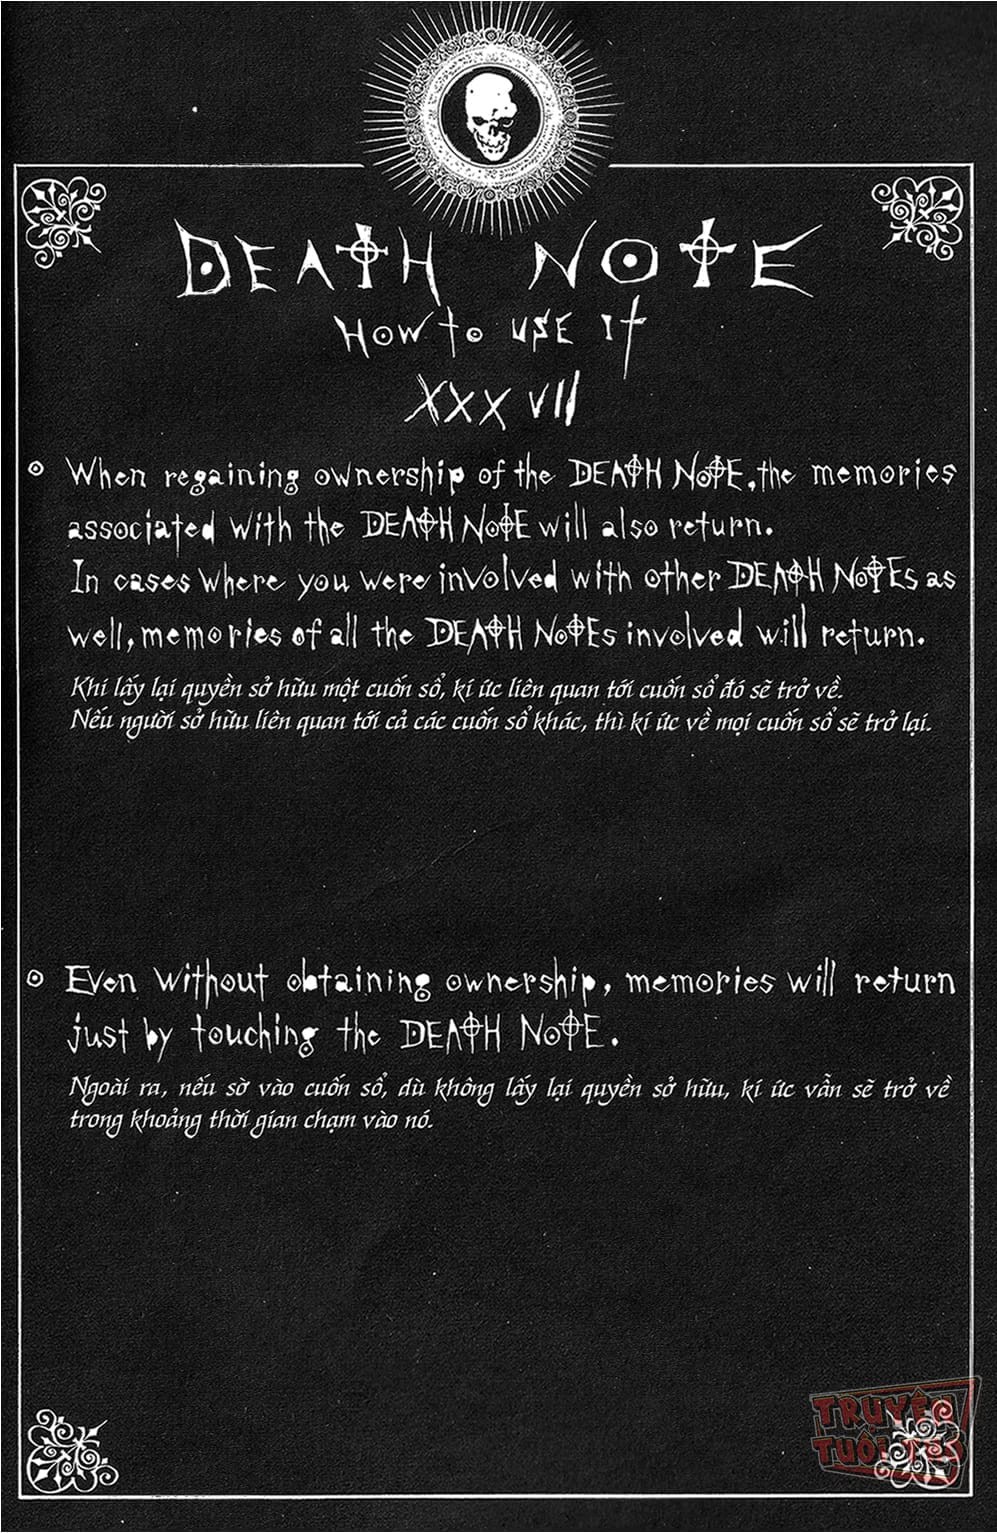 DEATH NOTE
HOW TO USE IT
XXXVII
When regaining ownership of the DEATH NOTE, the memories
associated with the DEATH NOTE will also return.
In cases where you were involved with other DEATH NOTEs as
well, memories of all the DEATH NOTEs involved will return.
Khi lấy lại quyền sở hữu một cuốn sổ, kí ức liên quan tới cuốn sổ đó sẽ trở về.
Nếu người sở hữu liên quan tới cả các cuốn sổ khác, thì kí ức về mọi cuốn sổ sẽ trở lại.
Even without obtaining ownership, memories will return
just by touching the DEATH NOTE.
Ngoài ra, nếu sờ vào cuốn sổ, dù không lấy lại quyền sở hữu, kí ức vẫn sẽ trở về
trong khoảng thời gian chạm vào nó.
TRUYỆN
TUỔI THƠ